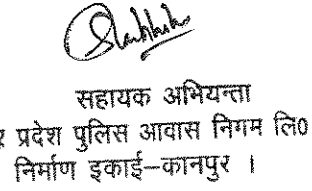 सहायक अभियन्ता
प्रदेश पुलिस आवास निगम लि०
निर्माण इकाई–कानपुर ।